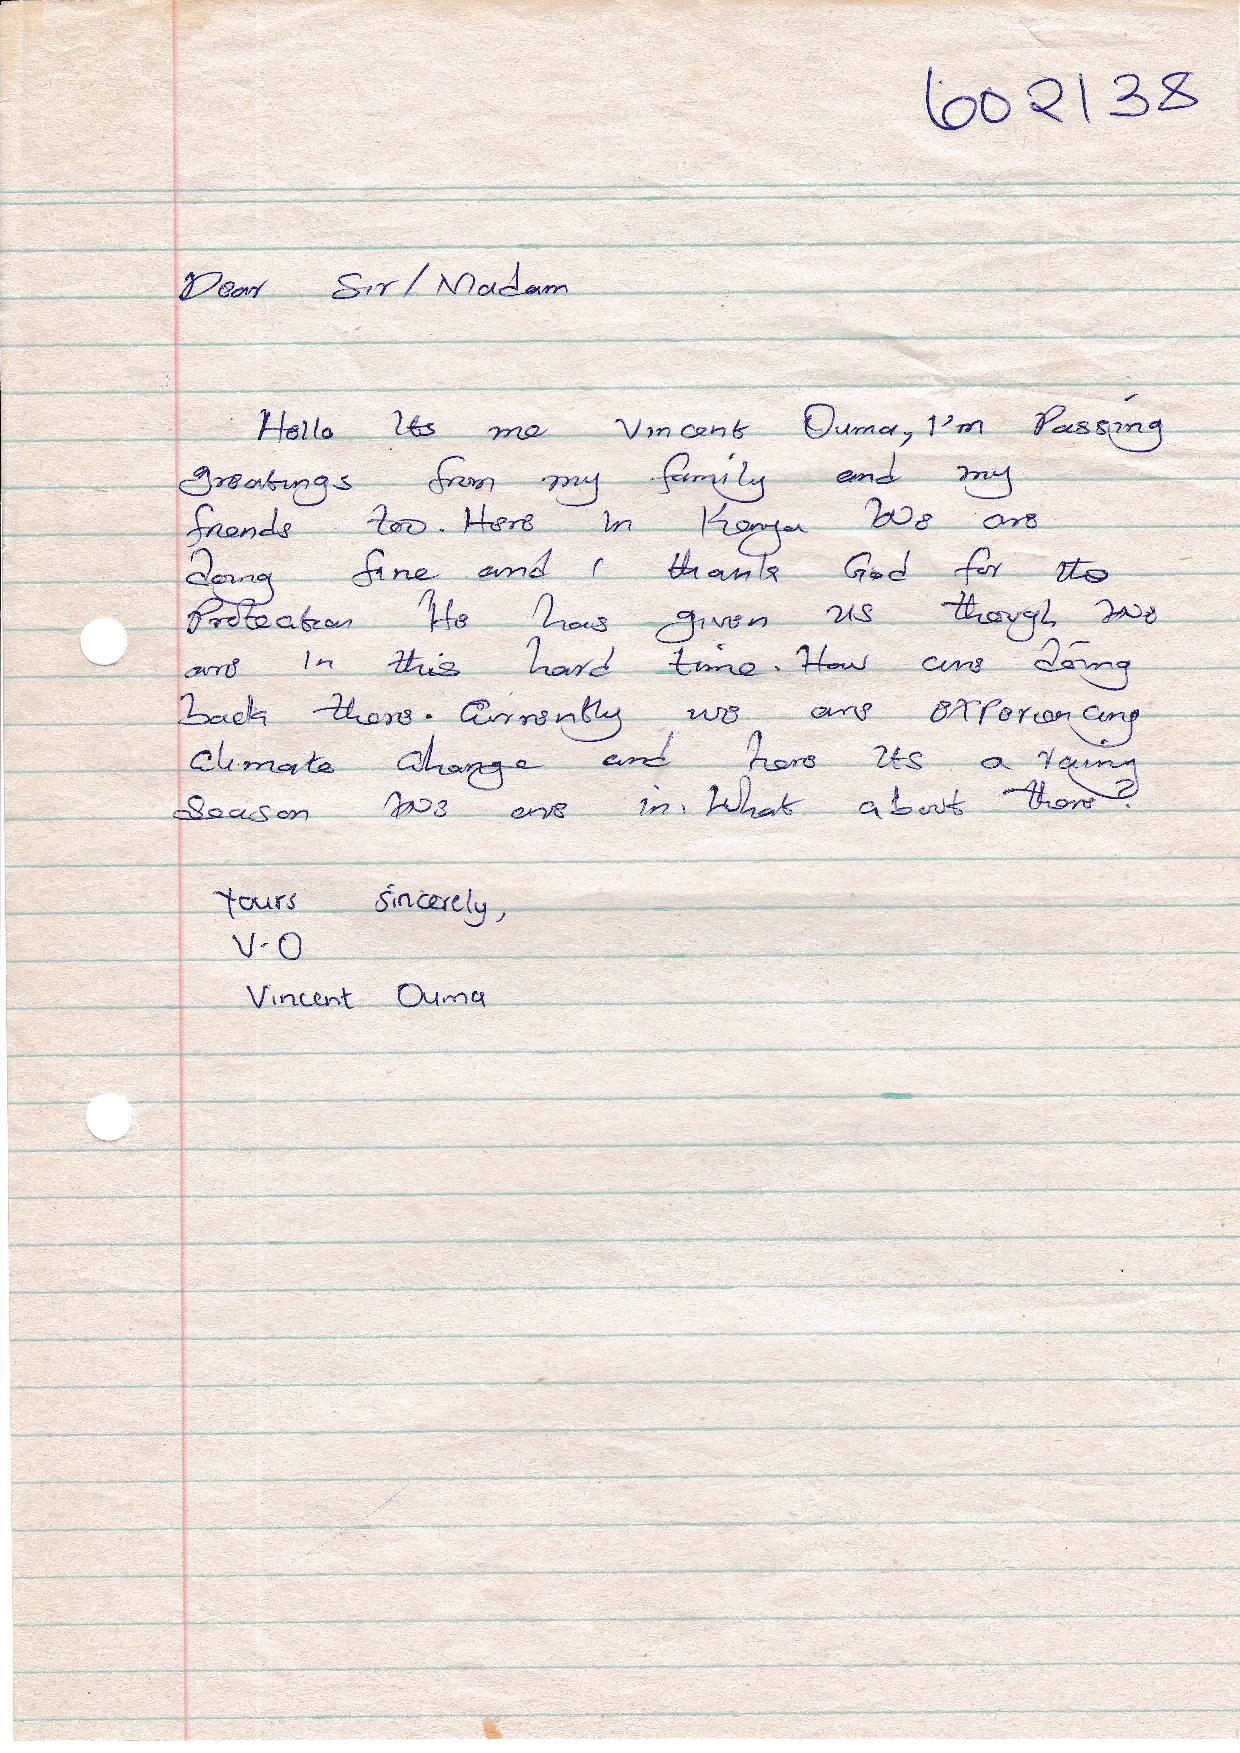 602138
Dear Sir/Madam
Hello Its me Vincent Ouma, I'm Passing
greetings from my family and my
friends too. Here in Kenya We are
doing fine and I thank God for the
Protection He has given us though we
are in this hard time. How are doing
back there. Currently we are experiencing
Climate change and here its a rainy
season we are in. What about there?
Yours sincerely,
V-O
Vincent Ouma